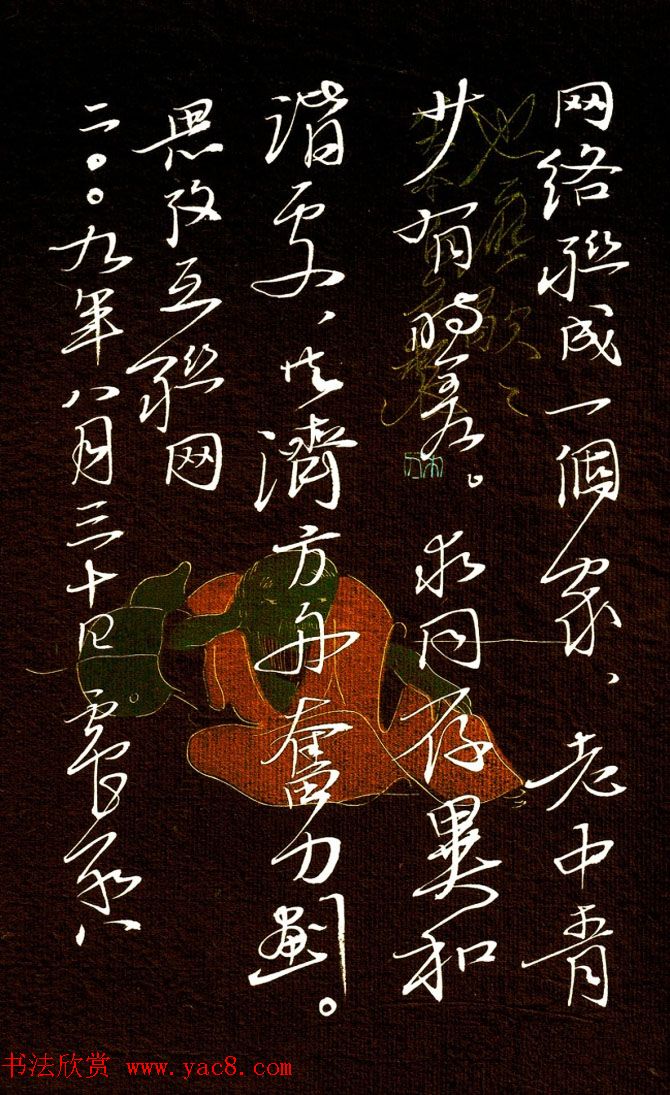 网络聯成一個家、老中青
少有時差。求同存異和
諧処、共濟方舟奮力劃。
思考互联网
二〇〇九年八月三十日
书法欣赏 www.yac8.com